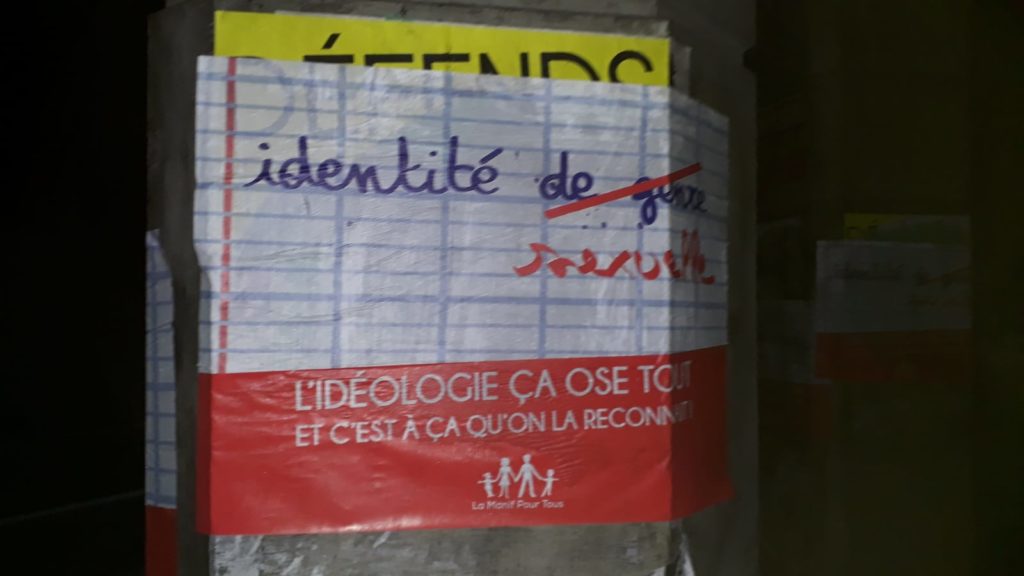 DÉFENDS
identité de genre
sexuelle
L'IDÉOLOGIE ÇA OSE TOUT
ET C'EST À ÇA QU'ON LA RECONNAIT !
La Manif Pour Tous